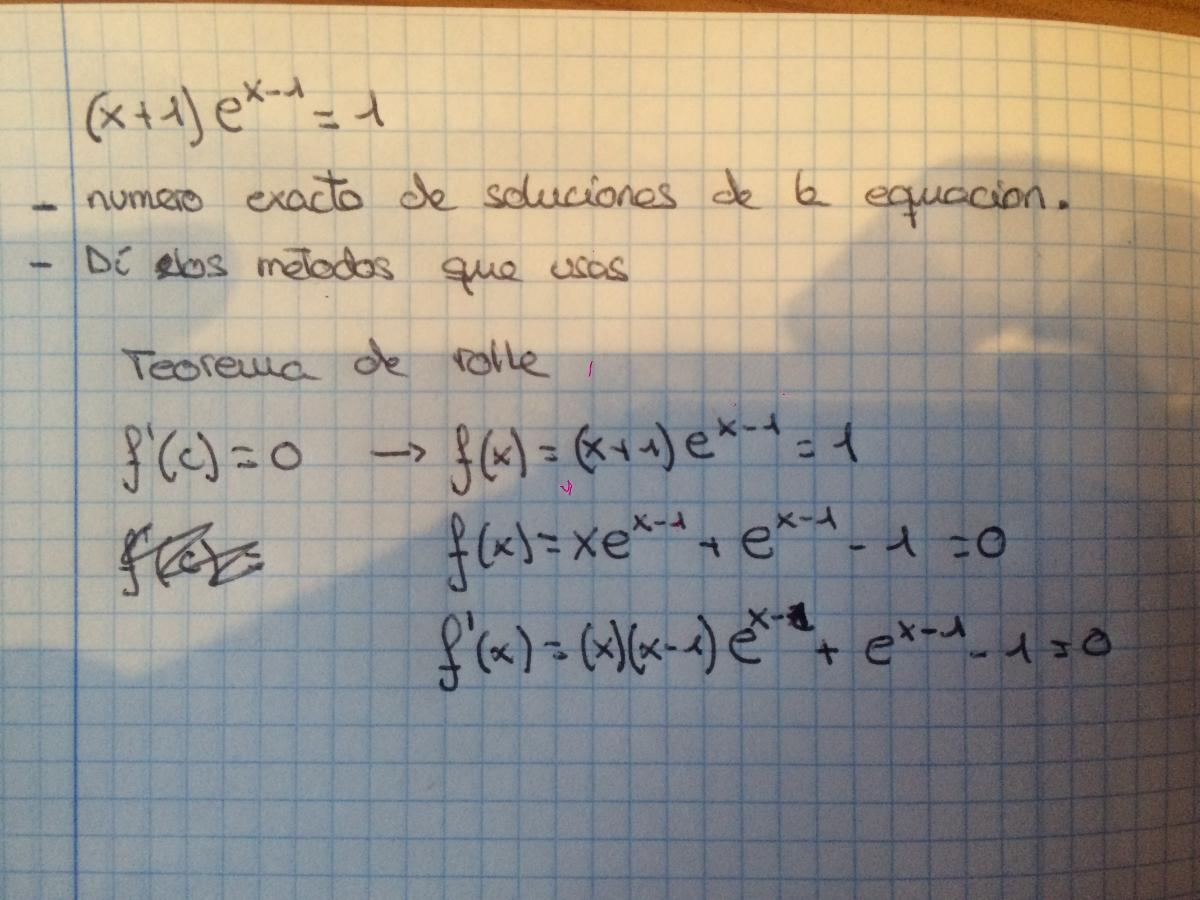 (x+1) e^{x-1} = 1
- numero exacto de soluciones de la equacion.
- Di los métodos que usas
Teorema de rolle
f'(c) = 0 → f(x) = (x+1) e^{x-1} = 1
f(x) = xe^{x-1} + e^{x-1} - 1 = 0
f'(x) = (x)(x-1) e^{x-1} + e^{x-1} - 1 = 0